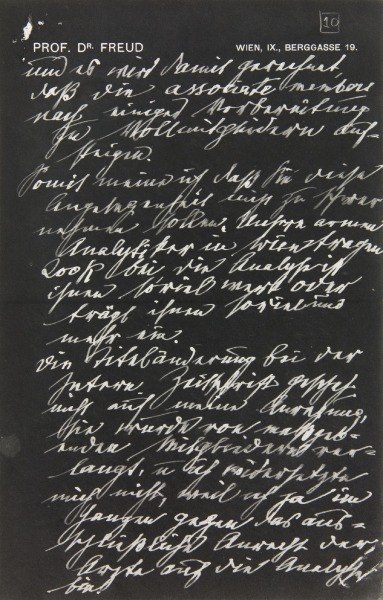 10
PROF. DR. FREUD WIEN, IX., BERGGASSE 19.
und es wird damit gerechnet,
daß die assoziate members
nach einiger Vorbereitung
zu Vollmitgliedern auf-
steigen.
Somit meine ich daß Sie diese
Angelegenheit nicht zu schwer
nehmen sollen. Unsere armen
Analytiker in Wien tragen
bei die Analyse ist
ihnen soviel wert oder
trägt ihnen soviel und
mehr ein.
Die Titeländerung bei der
Intern. Zeitschrift geschah
nicht auf meine Anregung,
sie wurde von maßgeb-
enden Mitgliedern ver-
langt, u ich widersetzte
mich nicht, weil ich ja im
Ganzen gegen das aus-
schließliche Anrecht der
Ärzte auf die Analyse
bin.